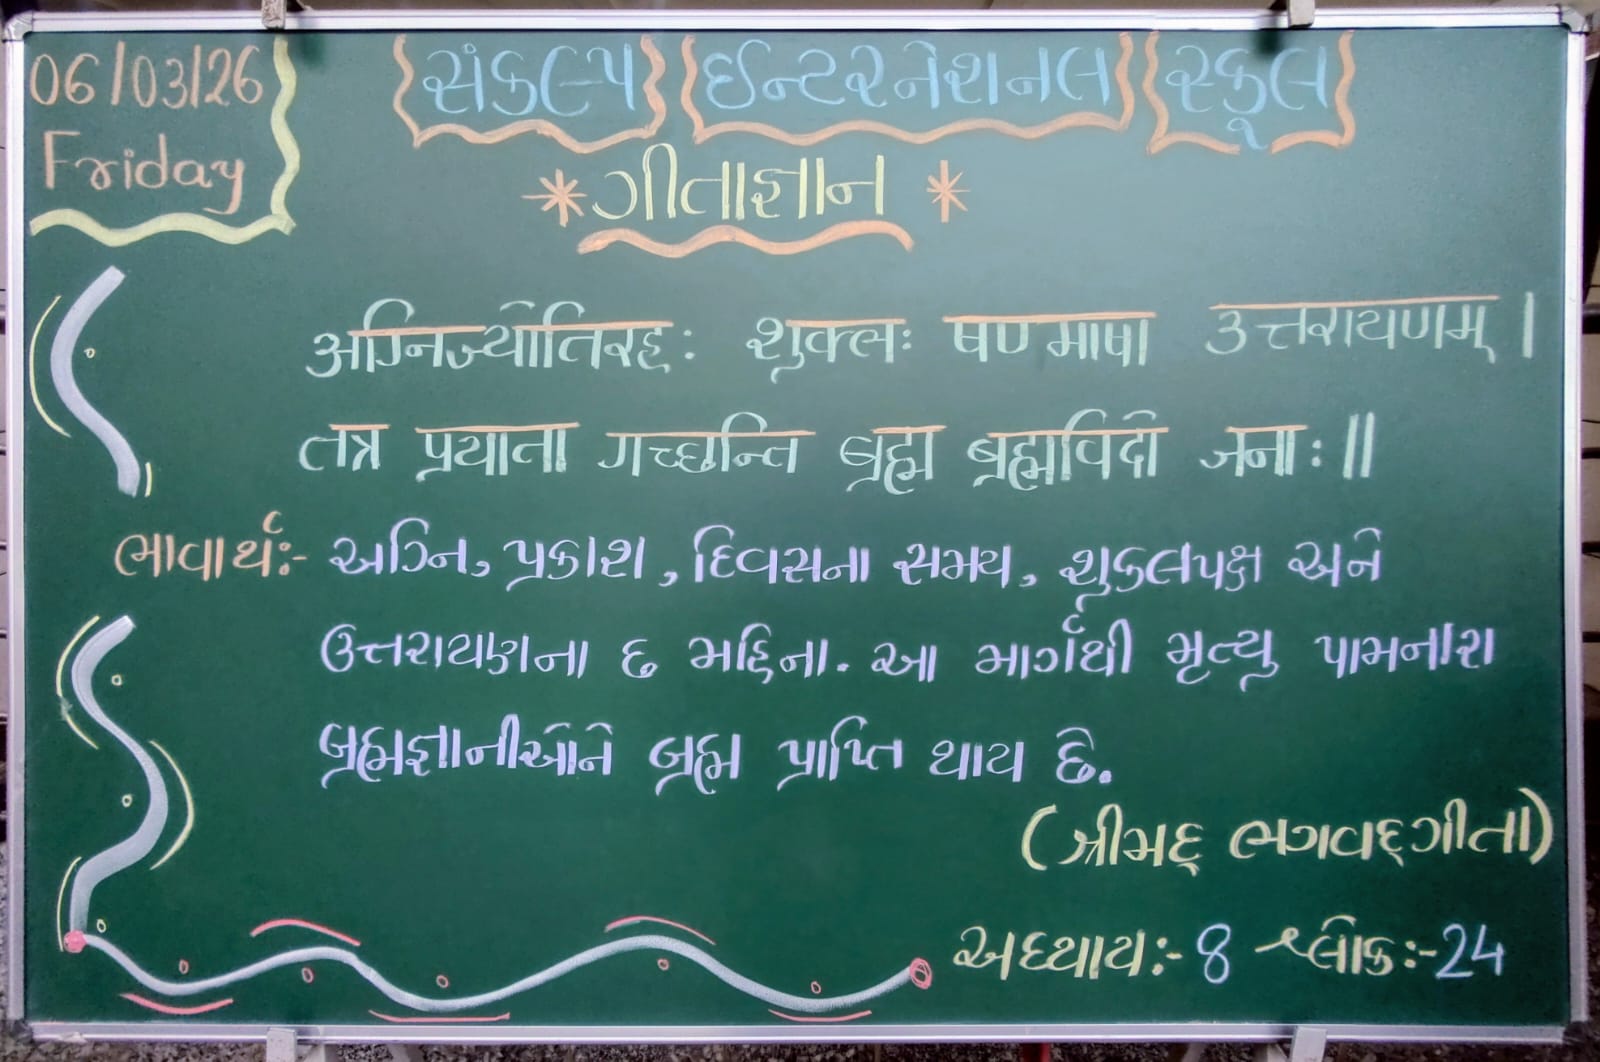 06/03/26
Friday
સંકલ્પ ઈન્ટરનેશનલ સ્કૂલ
* ગીતાજ્ઞાન *
अग्निज्योतिरहः शुक्लः षण्माषा उत्तरायणम् ।
तत्र प्रयाता गच्छन्ति ब्रह्म ब्रह्मविदो जनाः ॥
ભાવાર્થઃ- અગ્નિ, પ્રકાશ, દિવસના સમય, શુકલપક્ષ અને
ઉત્તરાયણના છ મહિના. આ માર્ગથી મૃત્યુ પામનારા
બ્રહ્મજ્ઞાનીઓને બ્રહ્મ પ્રાપ્તિ થાય છે.
(શ્રીમદ્ ભગવદ્ગીતા)
અધ્યાયઃ- 8 શ્લોકઃ- 24